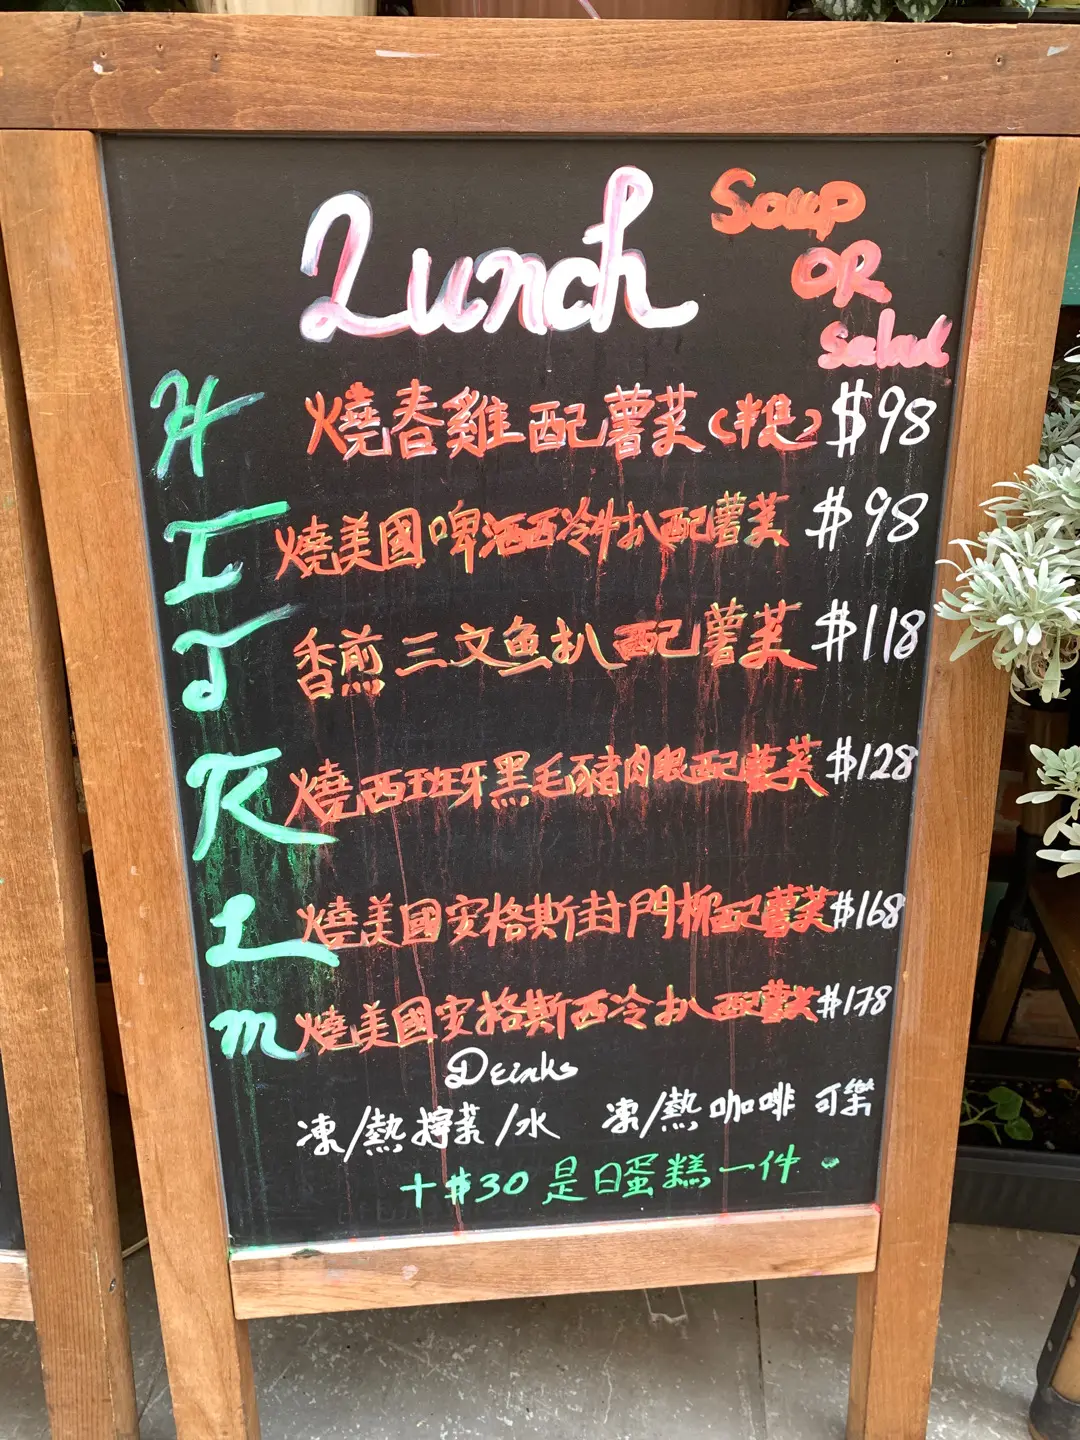 Lunch
Soup
OR
Salad
H 燒春雞配薯菜(半隻) $98
I 燒美國啤酒西冷牛扒配薯菜 $98
J 香煎三文魚扒配薯菜 $118
K 燒西班牙黑毛豬肉眼配薯菜 $128
L 燒美國安格斯封門柳配薯菜 $168
m 燒美國安格斯西冷扒配薯菜 $178
Drinks
凍/熱檸茶/水 凍/熱咖啡 可樂
+$30 是日蛋糕一件。